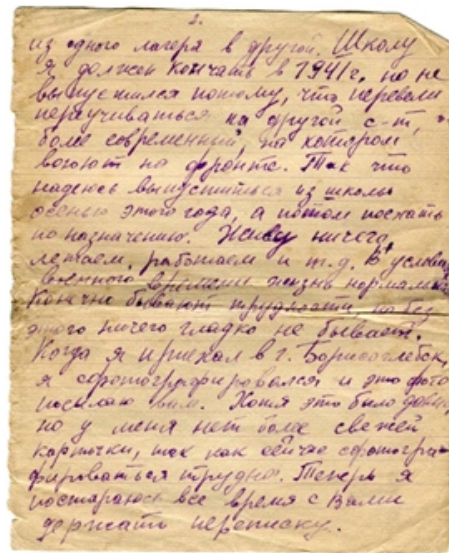 2.
из одного лагеря в другой. Школу
я должен кончать в 1941г. но не
выпустился потому, что перевели
переучиваться на другой с-т,
более современный, на котором
воюют на фронте. Так что
надеюсь выпуститься из школы
осенью этого года, а потом поехать
по назначению. Живу ничего,
летаем, работаем и т.д. В услови
военного времени жизнь нормаль
Конечно бывают трудности, но без
этого ничего гладко не бывает.
Когда я приехал в г. Борисоглебск,
я сфотографировался и это фото
посылаю вам. Хотя это было давно
но у меня нет более свежей
карточки, так как сейчас сфотогра-
фироваться трудно. Теперь я
постараюсь все время с Вами
держать переписку.